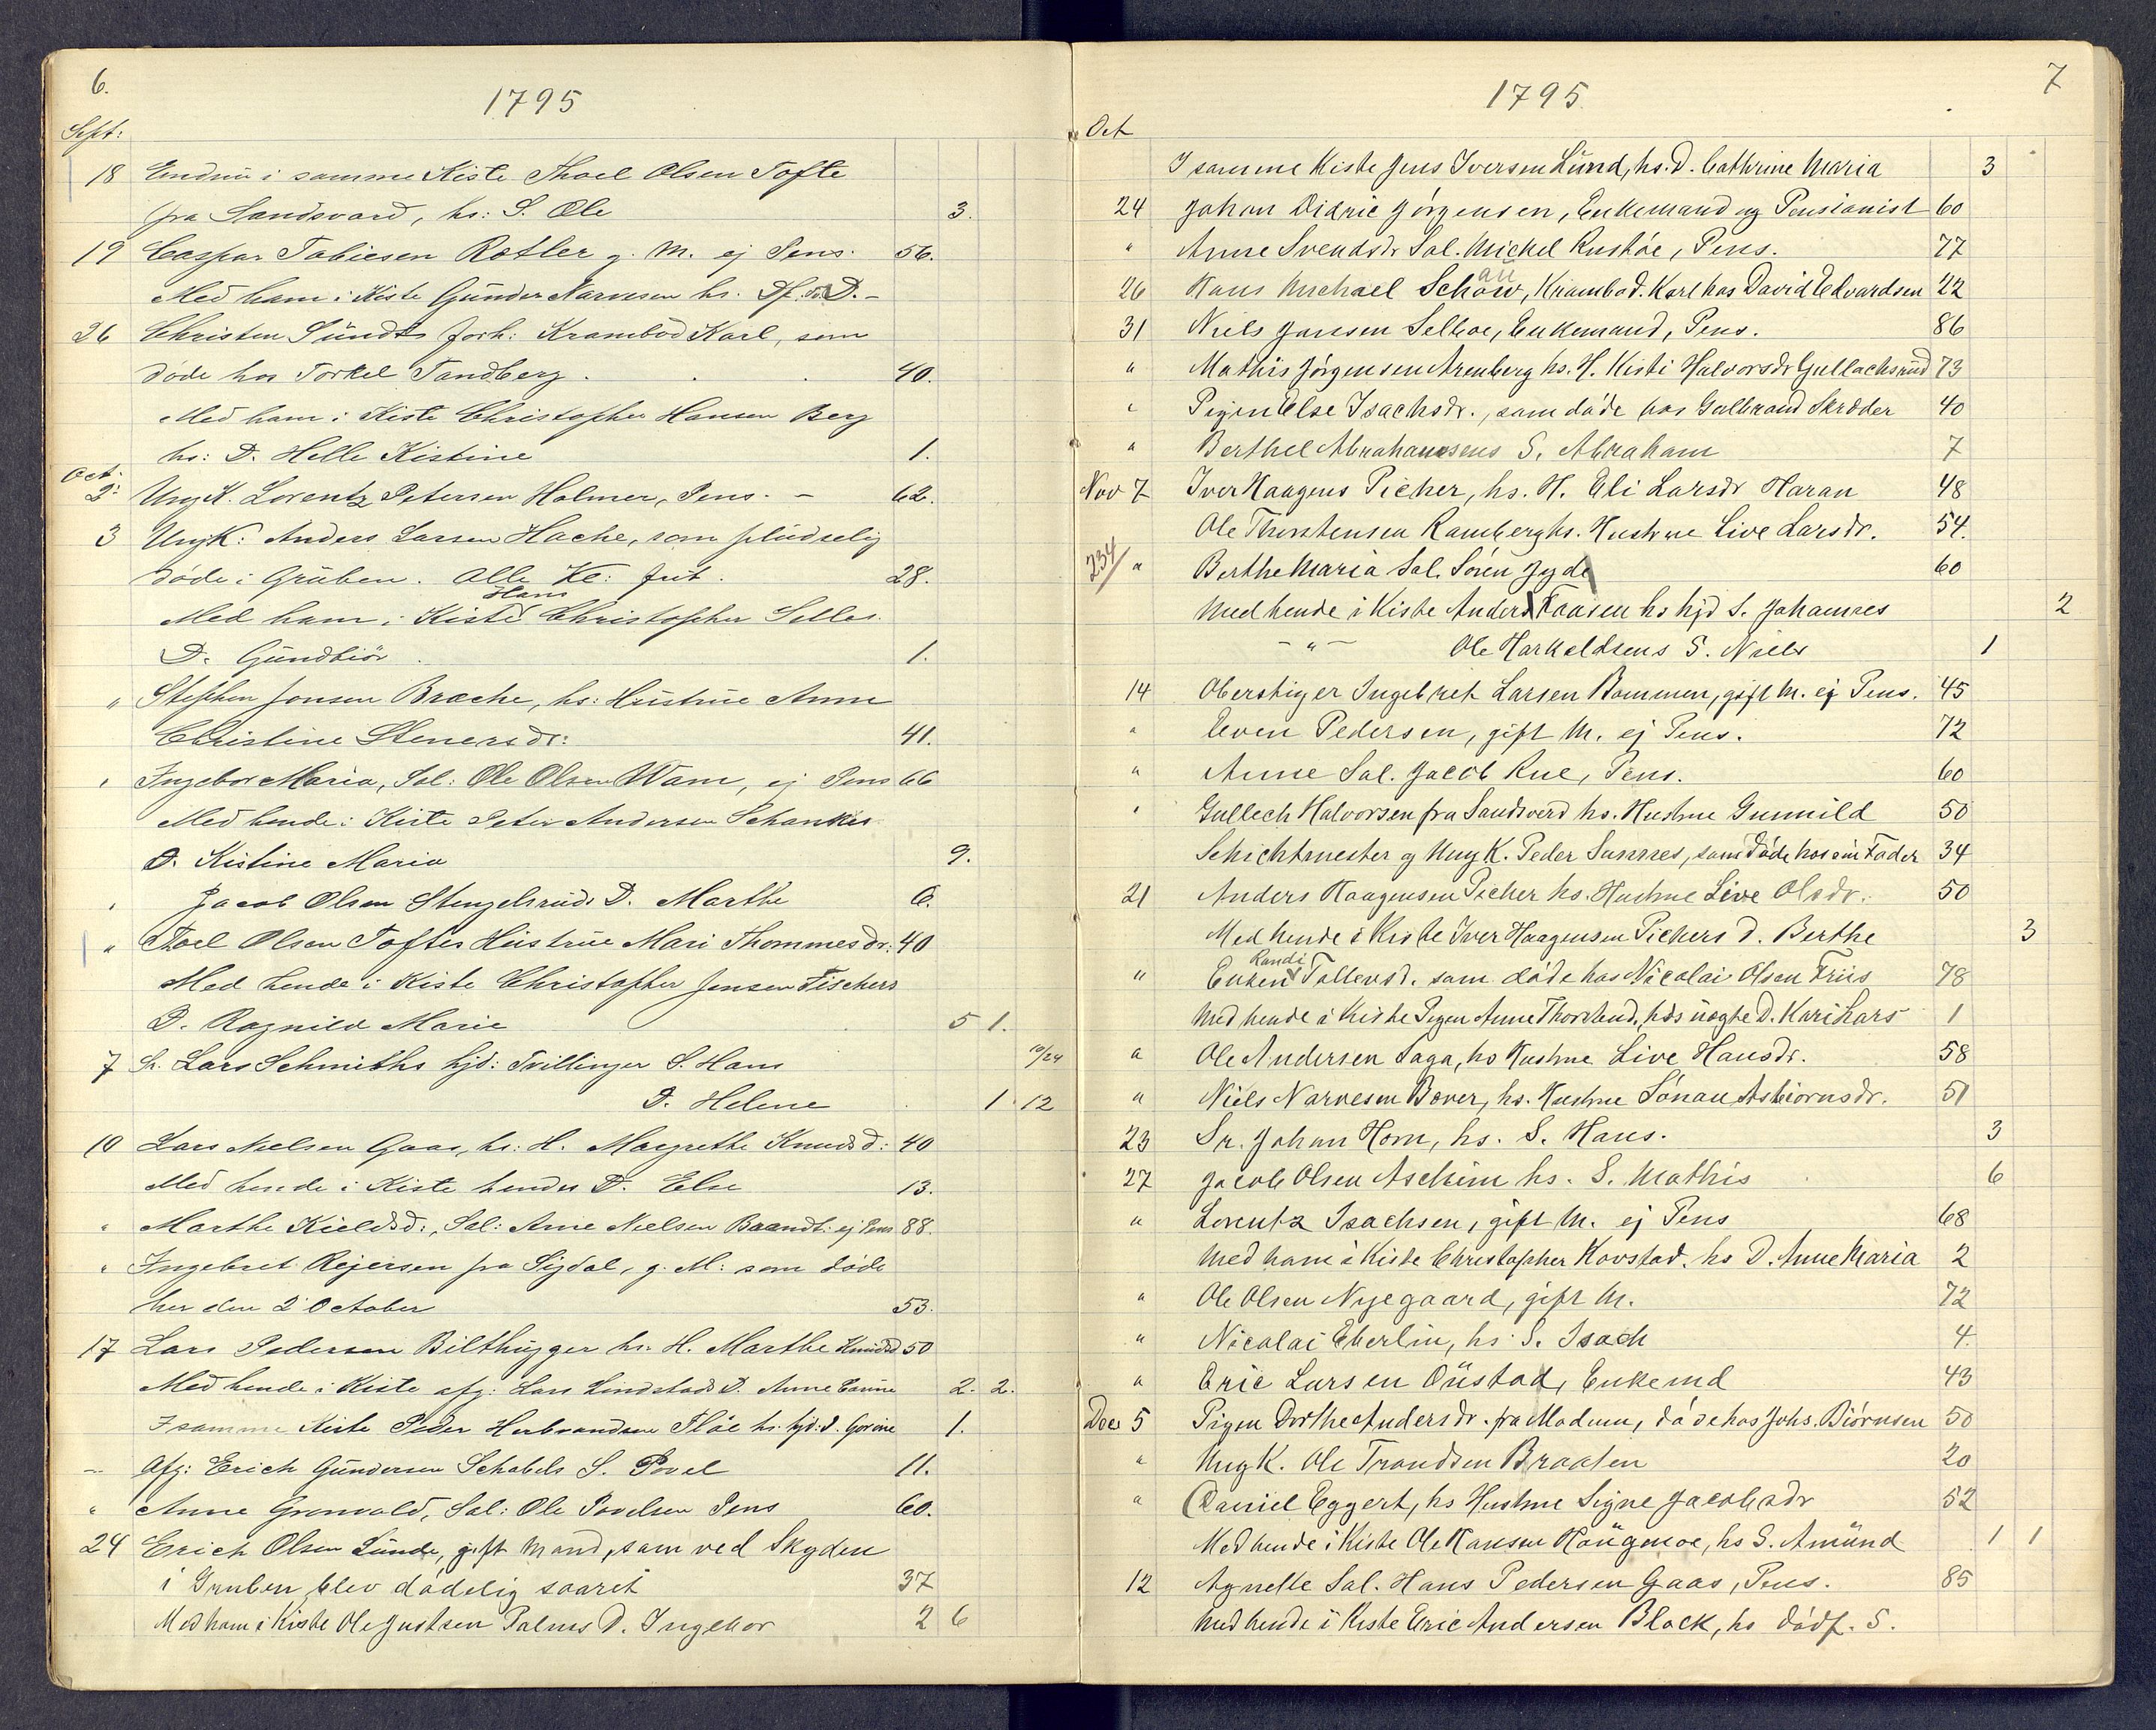 6.
1795
Sept:
18 Endnu i samme Kiste Thoel Olsen Tofte
fra Sandsvard, hs: S. Ole 3.
19 Caspar Tobiesen Rotler g. M. ej Pens. 56.
Med ham i Kiste Gunder Narvesen hs. Df. D. -
26 Christen Sündt forh: Krambod Karl, som
døde hos Torkel Tandberg. 40.
Med ham i Kiste Christopher Hansen Berg
hs: D. Helle Kistine 1.
Oct.
2. Ung K. Lorentz Petersen Holmer, Pens. - 62.
3 Ung K: Anders Larsen Hache, som plüdselig
døde i Grüben. Alle Ke: frit. 28.
Hans
Med ham i Kiste Christopher Selles
D. Gündbiör 1.
" Stephen Jonsen Brache, hs: Hüstrüe Anne
Christine Stenersdr: 41.
" Ingebor Maria, Sal: Ole Olsen Wam, ej Pens 66
Med hende i Kiste Peter Andersen Schankes
D. Kistine Maria 9.
" Jacob Olsen Stengelsrüds D. Marthe 6.
" Thoel Olsen Toftes Hüstrüe Mari Thommesdr: 40
Med hende i Kiste Christopher Jensen Fischers
D. Ragnild Marie 5 1.
7 Sr. Lars Schmiths hjd: Tvillinger S. Hans 10/24
D. Helene 1 12
10 Lars Nielsen Gaas, hs: H. Margrethe Knudsd: 40
Med hende i Kiste hendes D. Else 13.
" Marthe Kieldsd:, Sal: Arne Nielsen Baandt: ej Pens 88.
" Ingebret Rejersen fra Sigdal, g. M: som døde
her den 2 October 53.
17 Lars Pedersen Bilthügger hs. H. Marthe Knudsd 50
Med hende i Kiste afg: Lars Lindstads D. Anne Carine 2. 2.
I samme Kiste Peder Herbrandsen Flåe hs. hjd: D. Gorine 1.
" Afg: Erich Gündersen Schabels S. Povel 11.
" Anne Gronvald, Sal: Ole Povelsen Pens 60.
24 Erich Olsen Lünde, gift Mand, som ved Skyden
i Gruben blev dødelig saaret 37
Med ham i Kiste Ole Justsen Palms D. Ingebor 2 6
7
1795
Oct
I samme Kiste Jens Iversen Lünd, hs. D. Cathrine Maria 3
24 Johan Didric Jørgensen, Enkemand og Pensionist 60
" Anne Svendsdr Sal. Michel Rustøe, Pens. 77
au
26 Hans Michael Schow, Krambod. Karl hos David Edvardsen 22
31 Niels Jansen Selboe, Enkemand, Pens. 86
" Mathis Jørgensen Arenberg hs. H. Kisti Halvorsdr Gullachsrud 73
" Pigen Else Isachsdr., som døde hos Gulbrand Skræder 40
" Berthel Abrahamsens S. Abraham 7
Nov 7 Iver Haagens Picher, hs. H. Eli Larsdr Haran 48
Ole Thorstensen Ramberg hs. Hustrue Live Larsdr. 54.
234/ " Berthe Maria Sal. Søren Jyde 60
Med hende i Kiste Anders Faasen hs hjd S. Johannes 2
- " - Ole Harkeldsens S. Niels 1
14 Oberstiger Ingebret Larsen Bommen, gift M. ej Pens. 45
" Even Pedersen, gift M. ej Pens. 72
" Anne Sal. Jacob Rue, Pens. 60
" Gullech Halvorsen fra Sandsverd hs. Hustrue Gunnild 50
Schichtmester og Ung K. Peder Sunnes, som døde hos sin Fader 34
21 Anders Haagensen Picher hs. Hustrue Live Olsdr. 50
Med hende i Kiste Iver Haagensen Pickers D. Berthe 3
Randi
" Enken Tollevsd. som døde hos Nicolai Olsen Friis 78
Med hende i Kiste Pigen Anne Thorstend. hds uægte D. Kari Lars 1
" Ole Andersen Saga, hs Hustrue Live Hansdr. 58
" Niels Narvesen Bover, hs. Hustrue Sønau Asbiornsdr. 51
23 Sr. Johan Horn, hs. S. Hans. 3
27 Jacob Olsen Aschim hs. S. Mathis 6
" Lorentz Isachsen, gift M. ej Pens 68
Med ham i Kiste Christopher Kovstad. hs D. Anne Maria 2
" Ole Olsen Nyegaard, gift M. 72
" Nicolai Eberlin, hs. S. Isach 4.
" Eric Larsen Oüstad, Enkemd 43
Dec 5 Pigen Dorthe Andersdr. fra Modum, døde hos Johs. Biörnsen 50
" Ung K. Ole Trondsen Braaten 20
" Daniel Eggert, hs Hustrue Signe Jacobsdr 52
Med hende i Kiste Ole Hansen Höügmoe, hs S. Amünd 1 1
12 Agnethe Sal. Hans Pedersen Gaas, Pens. 85
Med hende i Kiste Eric Andersen Block, hs dødf. S.